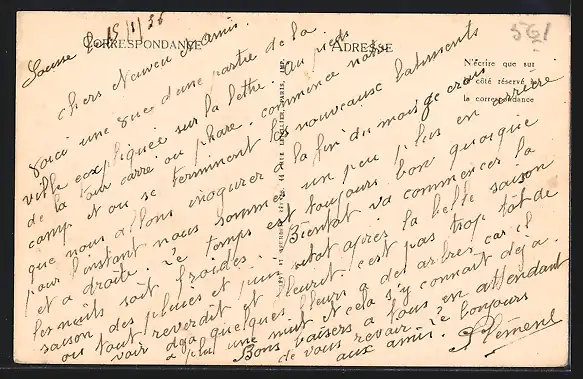 Sousse le 15/1/36
CORRESPONDANCE
ADRESSE
561
N'écrire que sur
le côté réservé à
la correspondance
chers Neveu et amis.
Voici une vue d'une partie de la
ville expliquée sur la lettre. Au pied
de la tour carré ou phare, commence notre
camp et ou se terminent les nouveause batiments
que nous allons inogurer à la fin du mois je crois
pour l'instant nous sommes un peu plus en arrière
et a droite. Le temps est toujours bon quoique
les nuits soit froides. Bientot va commencer la
saison des pluies et puis sitot après la belle saison
ou tout reverdit et fleurit. c'est pas trop tôt de
voir déja quelques fleurs a des arbres car il
a plut une nuit et cela s'y connait déja.
Bons baisers a tous en attendant
de vous revoir. Le bonjours
aux amis.
Clément